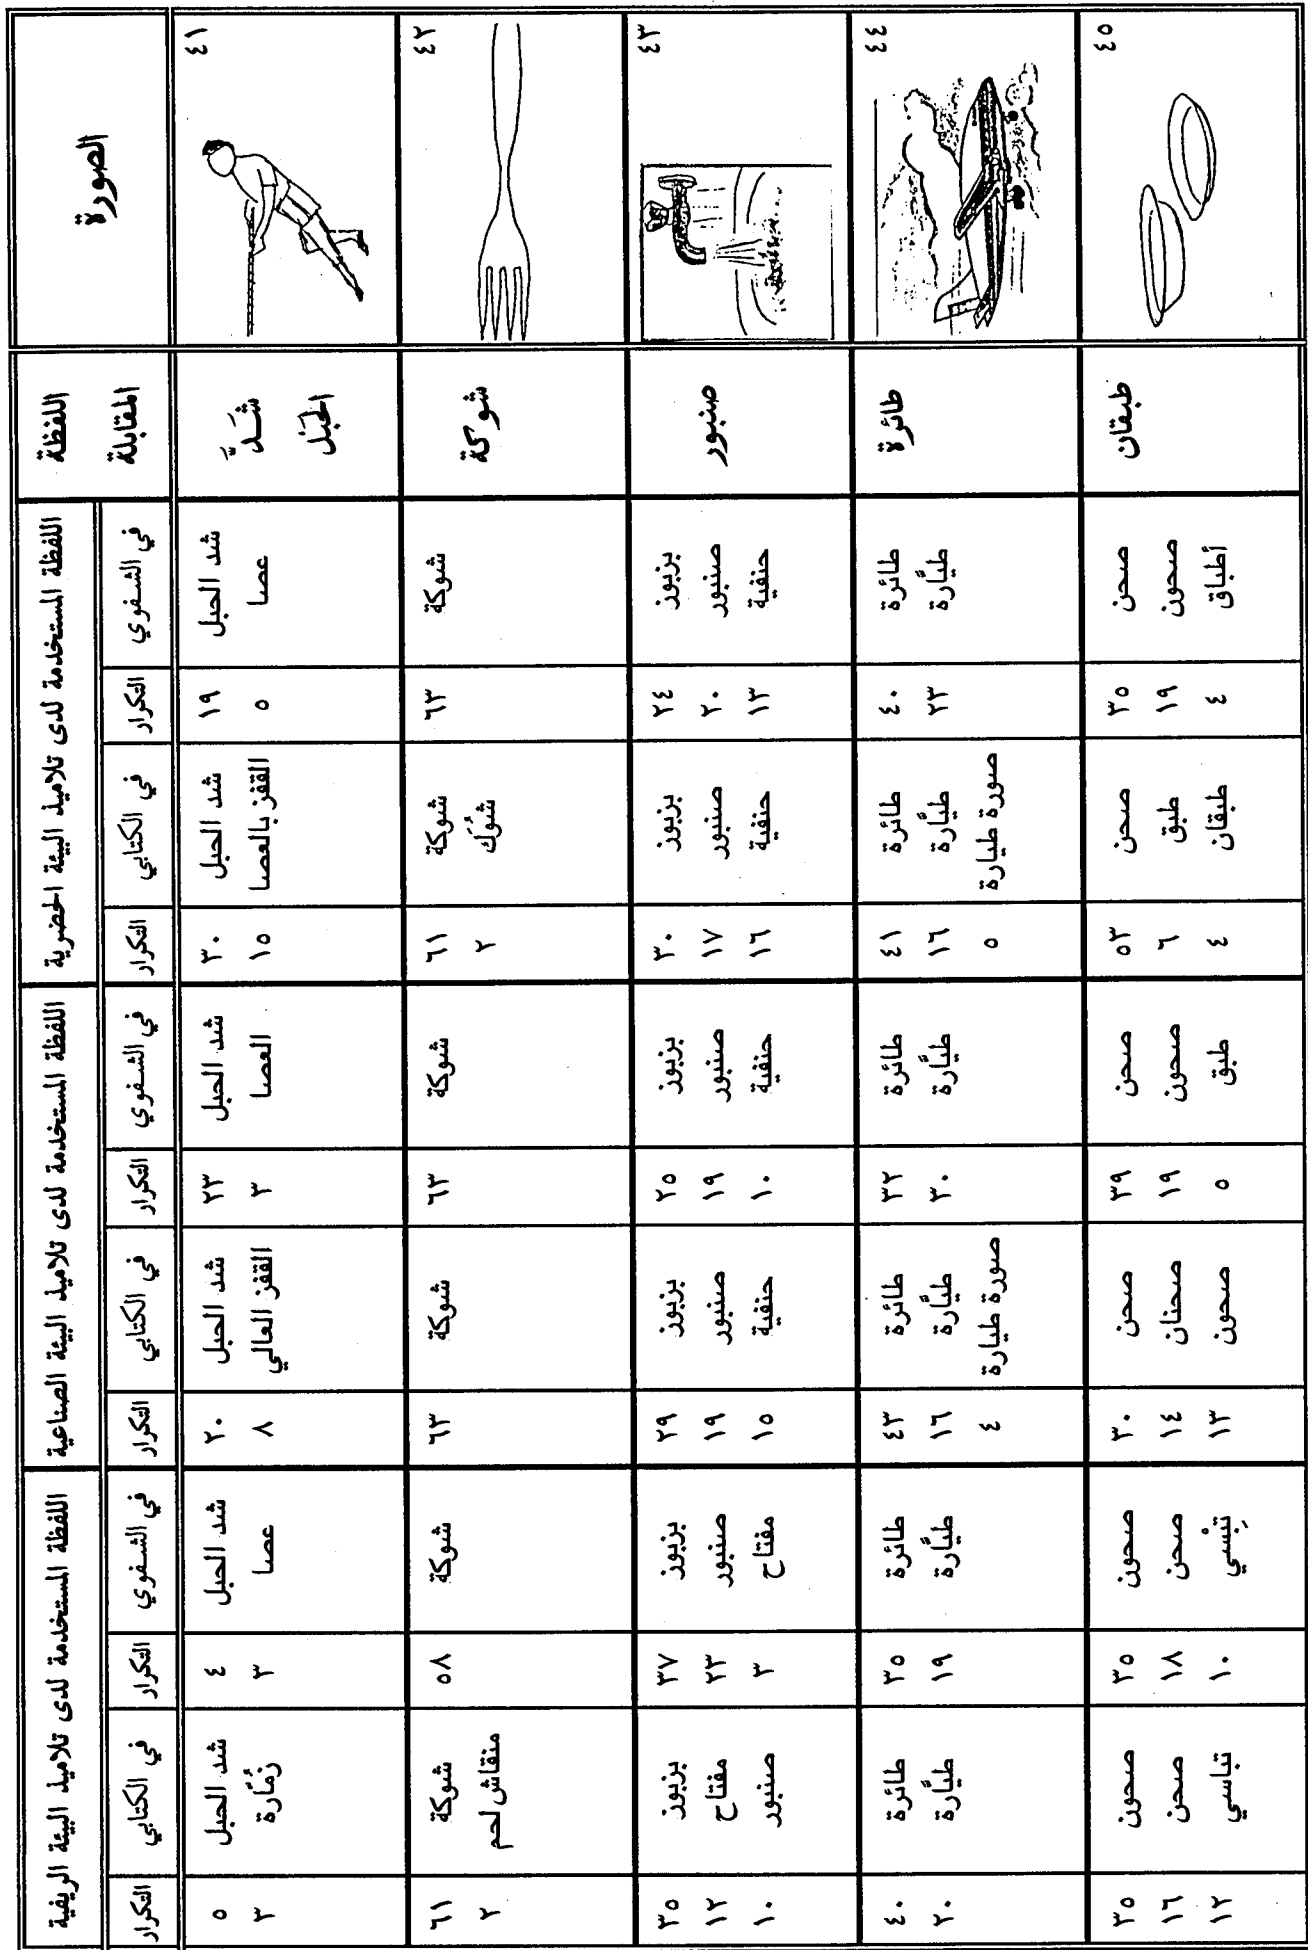 الصورة
اللفظة المقابلة
اللفظة المستخدمة لدى تلاميذ البيئة الحضرية
اللفظة المستخدمة لدى تلاميذ البيئة الصناعية
اللفظة المستخدمة لدى تلاميذ البيئة الريفية
في الشفوي
التكرار
في الكتابي
التكرار
في الشفوي
التكرار
في الكتابي
التكرار
في الشفوي
التكرار
في الكتابي
التكرار
٤١
شَدَّ
الحَبْل
شد الحبل
عصا
١٩
٥
شد الحبل
القفز بالعصا
٣٠
١٥
شد الحبل
العصا
٢٣
٣
شد الحبل
القفز العالي
٢٠
٨
شد الحبل
عصا
٤
٣
شد الحبل
زُمَّارة
٥
٣
٤٢
شوكة
شوكة
٦٣
شوكة
شُوَك
٦١
٢
شوكة
٦٣
شوكة
٦٣
شوكة
٥٨
شوكة
منقاش لحم
٦١
٢
٤٣
صنبور
بزبوز
صنبور
حنفية
٢٤
٢٠
١٣
بزبوز
صنبور
حنفية
٣٠
١٧
١٦
بزبوز
صنبور
حنفية
٢٥
١٩
١٠
بزبوز
صنبور
حنفية
٢٩
١٩
١٥
بزبوز
صنبور
مفتاح
٣٧
٢٣
٣
بزبوز
مفتاح
صنبور
٣٥
١٢
١٠
٤٤
طائرة
طائرة
طيَّارة
٤٠
٢٣
طائرة
طيَّارة
صورة طيارة
٤١
١٦
٥
طائرة
طيَّارة
٣٢
٣٠
طائرة
طيَّارة
صورة طيارة
٤٣
١٦
٤
طائرة
طيَّارة
٣٥
١٩
طائرة
طيَّارة
٤٠
٢٠
٤٥
طبقان
صحن
صحون
أطباق
٣٥
١٩
٤
صحن
طبق
طبقان
٥٣
٦
٤
صحن
صحون
طبق
٣٩
١٩
٥
صحن
صحنان
صحون
٣٠
١٤
١٣
صحون
صحن
تِبْسي
٣٥
١٨
١٠
صحون
صحن
تباسي
٣٥
١٦
١٢